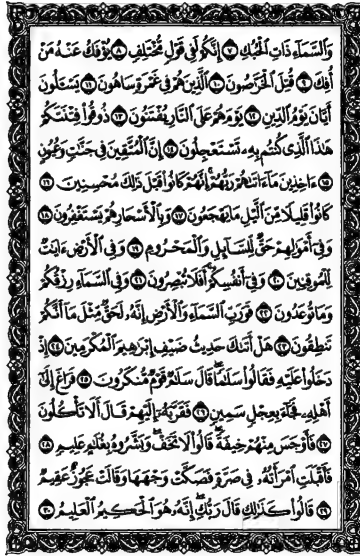 وَالسَّمَاءِ ذَاتِ الْحُبُكِ ۝٧ إِنَّكُمْ لَفِي قَوْلٍ مُّخْتَلِفٍ ۝٨ يُؤْفَكُ عَنْهُ مَنْ
أُفِكَ ۝٩ قُتِلَ الْخَرَّاصُونَ ۝١٠ الَّذِينَ هُمْ فِي غَمْرَةٍ سَاهُونَ ۝١١ يَسْـَٔلُونَ
أَيَّانَ يَوْمُ الدِّينِ ۝١٢ يَوْمَ هُمْ عَلَى النَّارِ يُفْتَنُونَ ۝١٣ ذُوقُوا۟ فِتْنَتَكُمْ
هَٰذَا الَّذِي كُنتُم بِهِۦ تَسْتَعْجِلُونَ ۝١٤ إِنَّ الْمُتَّقِينَ فِي جَنَّٰتٍ وَعُيُونٍ
۝١٥ ءَاخِذِينَ مَا ءَاتَىٰهُمْ رَبُّهُمْ إِنَّهُمْ كَانُوا۟ قَبْلَ ذَٰلِكَ مُحْسِنِينَ ۝١٦
كَانُوا۟ قَلِيلًا مِّنَ الَّيْلِ مَا يَهْجَعُونَ ۝١٧ وَبِالْأَسْحَارِ هُمْ يَسْتَغْفِرُونَ ۝١٨
وَفِي أَمْوَٰلِهِمْ حَقٌّ لِّلسَّائِلِ وَالْمَحْرُومِ ۝١٩ وَفِي الْأَرْضِ ءَايَٰتٌ
لِّلْمُوقِنِينَ ۝٢٠ وَفِي أَنفُسِكُمْ أَفَلَا تُبْصِرُونَ ۝٢١ وَفِي السَّمَاءِ رِزْقُكُمْ
وَمَا تُوعَدُونَ ۝٢٢ فَوَرَبِّ السَّمَاءِ وَالْأَرْضِ إِنَّهُۥ لَحَقٌّ مِّثْلَ مَا أَنَّكُمْ
تَنطِقُونَ ۝٢٣ هَلْ أَتَىٰكَ حَدِيثُ ضَيْفِ إِبْرَٰهِيمَ الْمُكْرَمِينَ ۝٢٤ إِذْ
دَخَلُوا۟ عَلَيْهِ فَقَالُوا۟ سَلَٰمًا قَالَ سَلَٰمٌ قَوْمٌ مُّنكَرُونَ ۝٢٥ فَرَاغَ إِلَىٰ
أَهْلِهِۦ فَجَاءَ بِعِجْلٍ سَمِينٍ ۝٢٦ فَقَرَّبَهُۥ إِلَيْهِمْ قَالَ أَلَا تَأْكُلُونَ
۝٢٧ فَأَوْجَسَ مِنْهُمْ خِيفَةً قَالُوا۟ لَا تَخَفْ وَبَشَّرُوهُ بِغُلَٰمٍ عَلِيمٍ ۝٢٨
فَأَقْبَلَتِ امْرَأَتُهُۥ فِي صَرَّةٍ فَصَكَّتْ وَجْهَهَا وَقَالَتْ عَجُوزٌ عَقِيمٌ
۝٢٩ قَالُوا۟ كَذَٰلِكِ قَالَ رَبُّكِ إِنَّهُۥ هُوَ الْحَكِيمُ الْعَلِيمُ ۝٣٠